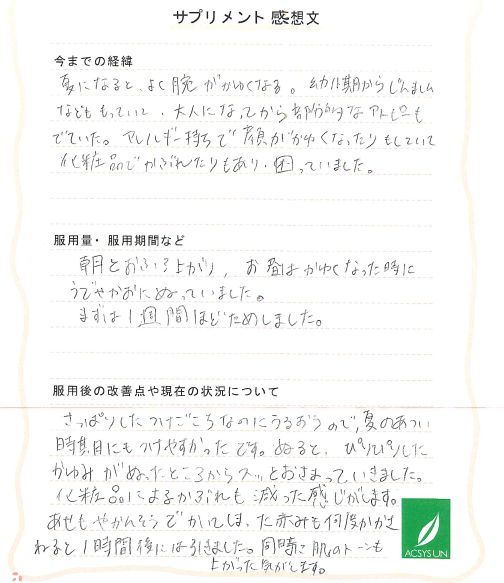 サプリメント 感想文
今までの経緯
夏になると、よく腕がかゆくなる。幼少期からじんましん
なども もっていて、大人になってから部分的なアトピーも
でていた。アレルギー持ちで顔がかゆくなったりもしていて
化粧品でかぶれたりもあり、困っていました。
服用量・服用期間など
朝とおふろ上がり、お昼はかゆくなった時に
うでやかおにぬっていました。
まずは1週間ほどためしました。
服用後の改善点や現在の状況について
さっぱりしたつけごこちなのにうるおうので、夏のあつい
時期にもつけやすかったです。ぬると、ぴりぴりした
かゆみがぬったところからスッとおさまっていきました。
化粧品によるかぶれも減った感じがします。
あせもやかんそうでかいてしまった赤みも何度かかさ
ねると1時間後には引きました。同時に肌のトーンも
上がった気がします。
ACSYS UN